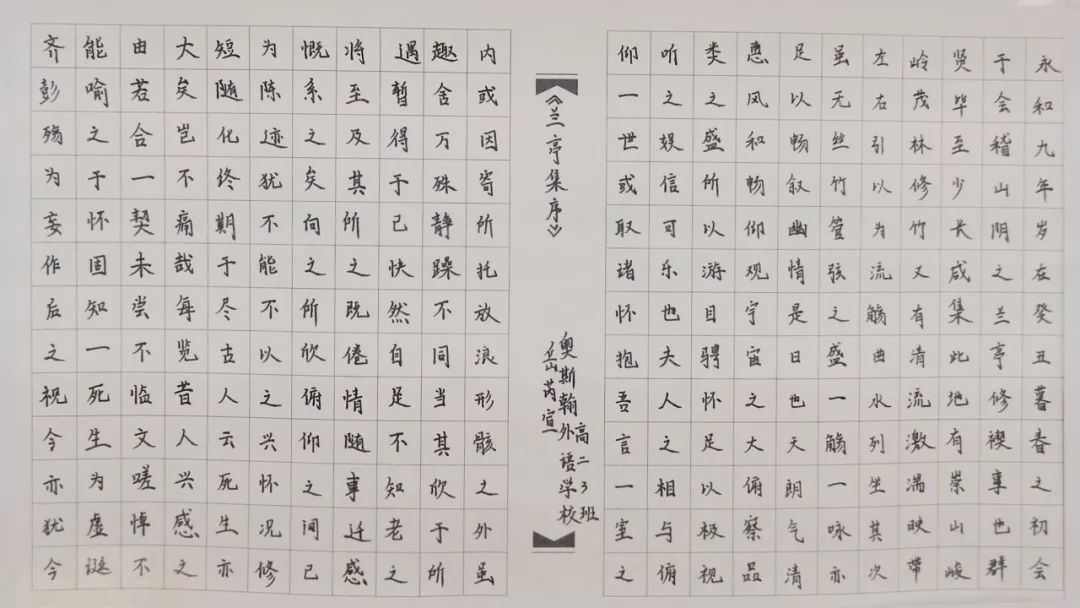 永和九年岁在癸丑暮春之初会
于会稽山阴之兰亭修禊事也群
贤毕至少长咸集此地有崇山峻
岭茂林修竹又有清流激湍映带
左右引以为流觞曲水列坐其次
虽无丝竹管弦之盛一觞一咏亦
足以畅叙幽情是日也天朗气清
惠风和畅仰观宇宙之大俯察品
类之盛所以游目骋怀足以极视
听之娱信可乐也夫人之相与俯
仰一世或取诸怀抱吾言一室之
《兰亭集序》
奥斯翰外语学校
高二3班
岳芮宣
内或因寄所托放浪形骸之外虽
趣舍万殊静躁不同当其欣于所
遇暂得于己快然自足不知老之
将至及其所之既倦情随事迁感
慨系之矣向之所欣俯仰之间已
为陈迹犹不能不以之兴怀况修
短随化终期于尽古人云死生亦
大矣岂不痛哉每览昔人兴感之
由若合一契未尝不临文嗟悼不
能喻之于怀固知一死生为虚诞
齐彭殇为妄作后之视今亦犹今